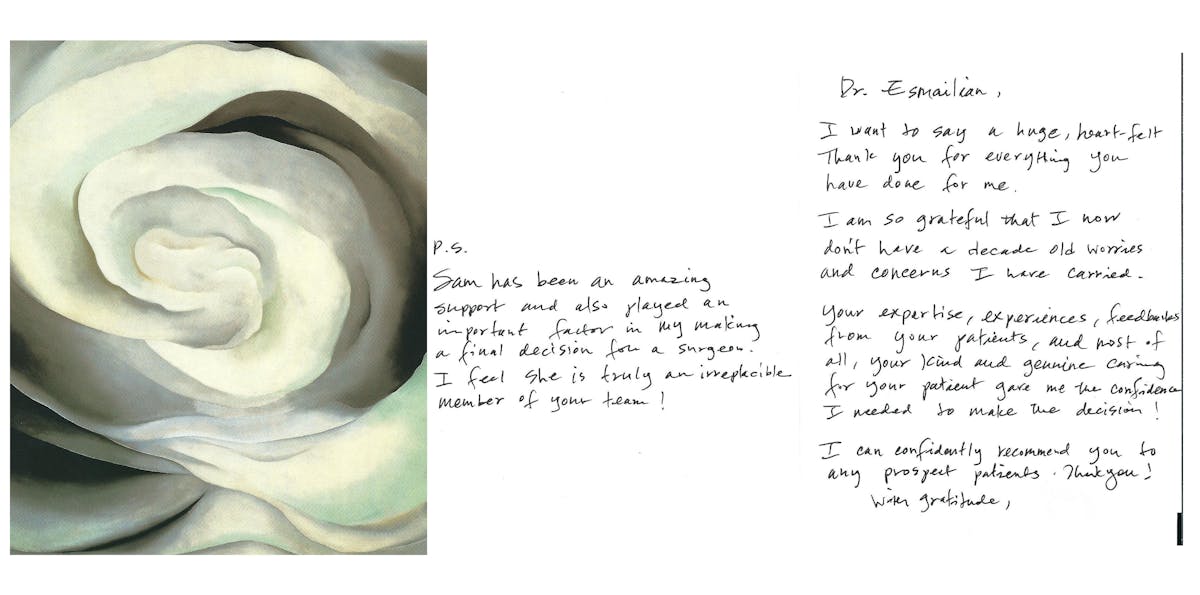 Dr. Esmailian,
I want to say a huge, heart-felt
Thank you for everything you
have done for me.
I am so grateful that I now
don't have a decade old worries
and concerns I have carried.
Your expertise, experiences, feedbacks
from your patients, and most of
all, your kind and genuine caring
for your patient gave me the confidence
I needed to make the decision!
I can confidently recommend you to
any prospect patients. Thank you!
With gratitude,
P.S.
Sam has been an amazing
support and also played an
important factor in my making
a final decision for a surgeon.
I feel she is truly an irreplacible
member of your team!